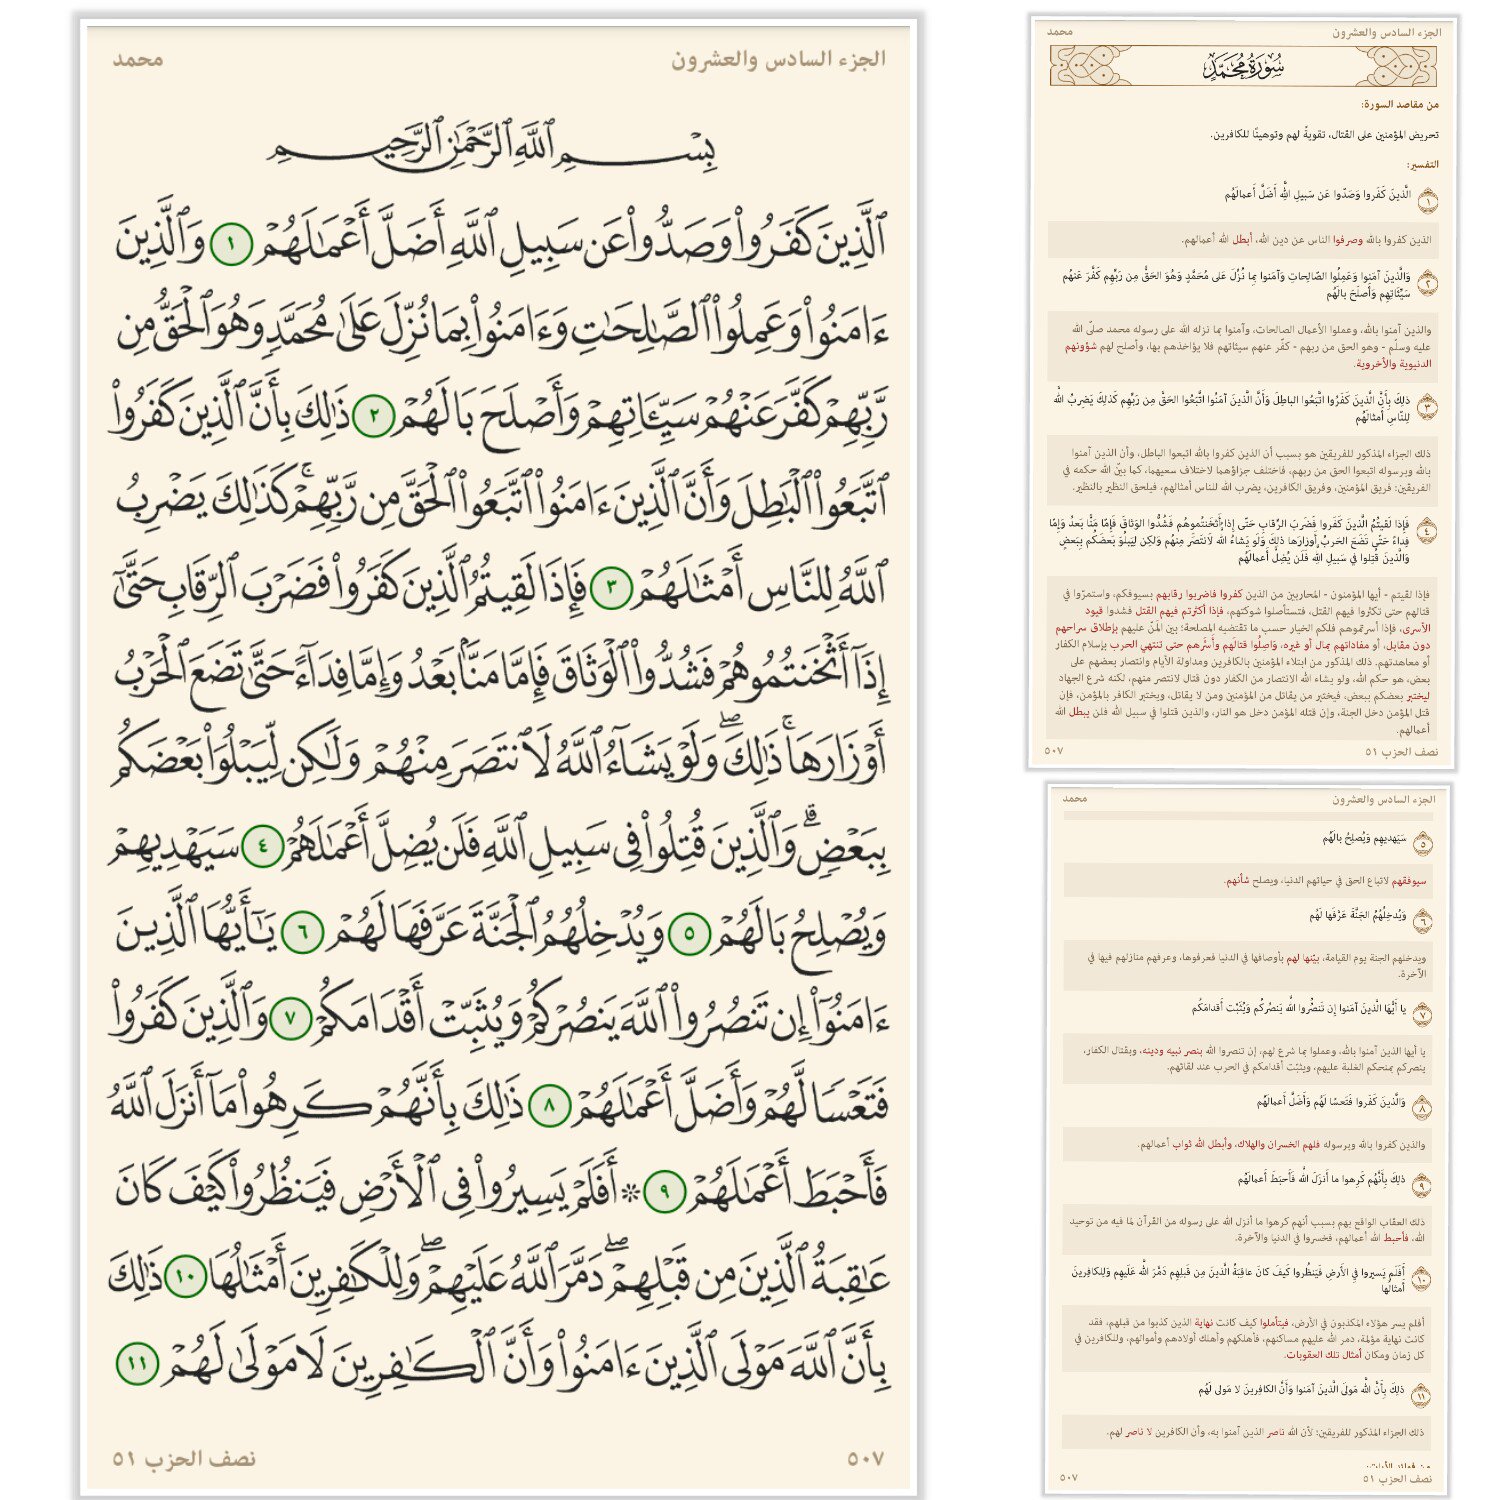 الجزء السادس والعشرون
محمد
بِسْمِ ٱللَّهِ ٱلرَّحْمَٰنِ ٱلرَّحِيمِ
ٱلَّذِينَ كَفَرُوا۟ وَصَدُّوا۟ عَن سَبِيلِ ٱللَّهِ أَضَلَّ أَعْمَٰلَهُمْ ١ وَٱلَّذِينَ
ءَامَنُوا۟ وَعَمِلُوا۟ ٱلصَّٰلِحَٰتِ وَءَامَنُوا۟ بِمَا نُزِّلَ عَلَىٰ مُحَمَّدٍ وَهُوَ ٱلْحَقُّ مِن
رَّبِّهِمْ كَفَّرَ عَنْهُمْ سَيِّـَٔاتِهِمْ وَأَصْلَحَ بَالَهُمْ ٢ ذَٰلِكَ بِأَنَّ ٱلَّذِينَ كَفَرُوا۟
ٱتَّبَعُوا۟ ٱلْبَٰطِلَ وَأَنَّ ٱلَّذِينَ ءَامَنُوا۟ ٱتَّبَعُوا۟ ٱلْحَقَّ مِن رَّبِّهِمْ ۚ كَذَٰلِكَ يَضْرِبُ
ٱللَّهُ لِلنَّاسِ أَمْثَٰلَهُمْ ٣ فَإِذَا لَقِيتُمُ ٱلَّذِينَ كَفَرُوا۟ فَضَرْبَ ٱلرِّقَابِ حَتَّىٰٓ
إِذَآ أَثْخَنتُمُوهُمْ فَشُدُّوا۟ ٱلْوَثَاقَ فَإِمَّا مَنًّۢا بَعْدُ وَإِمَّا فِدَآءً حَتَّىٰ تَضَعَ ٱلْحَرْبُ
أَوْزَارَهَا ۚ ذَٰلِكَ ۖ وَلَوْ يَشَآءُ ٱللَّهُ لَٱنتَصَرَ مِنْهُمْ وَلَٰكِن لِّيَبْلُوَا۟ بَعْضَكُم
بِبَعْضٍ ۗ وَٱلَّذِينَ قُتِلُوا۟ فِى سَبِيلِ ٱللَّهِ فَلَن يُضِلَّ أَعْمَٰلَهُمْ ٤ سَيَهْدِيهِمْ
وَيُصْلِحُ بَالَهُمْ ٥ وَيُدْخِلُهُمُ ٱلْجَنَّةَ عَرَّفَهَا لَهُمْ ٦ يَٰٓأَيُّهَا ٱلَّذِينَ
ءَامَنُوٓا۟ إِن تَنصُرُوا۟ ٱللَّهَ يَنصُرْكُمْ وَيُثَبِّتْ أَقْدَامَكُمْ ٧ وَٱلَّذِينَ كَفَرُوا۟
فَتَعْسًا لَّهُمْ وَأَضَلَّ أَعْمَٰلَهُمْ ٨ ذَٰلِكَ بِأَنَّهُمْ كَرِهُوا۟ مَآ أَنزَلَ ٱللَّهُ
فَأَحْبَطَ أَعْمَٰلَهُمْ ٩ ۞ أَفَلَمْ يَسِيرُوا۟ فِى ٱلْأَرْضِ فَيَنظُرُوا۟ كَيْفَ كَانَ
عَٰقِبَةُ ٱلَّذِينَ مِن قَبْلِهِمْ ۖ دَمَّرَ ٱللَّهُ عَلَيْهِمْ ۖ وَلِلْكَٰفِرِينَ أَمْثَٰلُهَا ١٠ ذَٰلِكَ
بِأَنَّ ٱللَّهَ مَوْلَى ٱلَّذِينَ ءَامَنُوا۟ وَأَنَّ ٱلْكَٰفِرِينَ لَا مَوْلَىٰ لَهُمْ ١١
٥٠٧
نصف الحزب ٥١
الجزء السادس والعشرون
محمد
سُورَةُ مُحَمَّدٍ
من مقاصد السورة:
تحريض المؤمنين على القتال، تقويةً لهم وتوهينًا للكافرين.
التفسير:
١ الَّذينَ كَفَروا وَصَدّوا عَن سَبيلِ اللَّهِ أَضَلَّ أَعمالَهُم
الذين كفروا بالله وصرفوا الناس عن دين الله، أبطل الله أعمالهم.
٢ وَالَّذينَ آمَنوا وَعَمِلُوا الصّالِحاتِ وَآمَنوا بِما نُزِّلَ عَلى مُحَمَّدٍ وَهُوَ الحَقُّ مِن رَبِّهِم كَفَّرَ عَنهُم
سَيِّئَاتِهِم وَأَصلَحَ بالَهُم
والذين آمنوا بالله، وعملوا الأعمال الصالحات، وآمنوا بما نزله الله على رسوله محمد صلّى الله
عليه وسلّم - وهو الحق من ربهم - كفّر عنهم سيئاتهم فلا يؤاخذهم بها، وأصلح لهم شؤونهم
الدنيوية والأخروية.
٣ ذلِكَ بِأَنَّ الَّذينَ كَفَرُوا اتَّبَعُوا الباطِلَ وَأَنَّ الَّذينَ آمَنُوا اتَّبَعُوا الحَقَّ مِن رَبِّهِم كَذلِكَ يَضرِبُ اللَّهُ
لِلنّاسِ أَمثالَهُم
ذلك الجزاء المذكور للفريقين هو بسبب أن الذين كفروا بالله اتبعوا الباطل، وأن الذين آمنوا
بالله وبرسوله اتبعوا الحق من ربهم، فاختلف جزاؤهما لاختلاف سعيهما، كما بيّن الله حكمه في
الفريقين: فريق المؤمنين، وفريق الكافرين، يضرب الله للناس أمثالهم، فيلحق النظير بالنظير.
٤ فَإِذا لَقيتُمُ الَّذينَ كَفَروا فَضَربَ الرِّقابِ حَتّى إِذا أَثخَنتُموهُم فَشُدُّوا الوَثاقَ فَإِمّا مَنًّا بَعدُ وَإِمّا
فِداءً حَتّى تَضَعَ الحَربُ أَوزارَها ذلِكَ وَلَو يَشاءُ اللَّهُ لَانتَصَرَ مِنهُم وَلكِن لِيَبلُوَ بَعضَكُم بِبَعضٍ
وَالَّذينَ قُتِلوا في سَبيلِ اللَّهِ فَلَن يُضِلَّ أَعمالَهُم
فإذا لقيتم - أيها المؤمنون - المحاربين من الذين كفروا فاضربوا رقابهم بسيوفكم، واستمرّوا في
قتالهم حتى تكثروا فيهم القتل، فتستأصلوا شوكتهم، فإذا أكثرتم فيهم القتل فشدوا قيود
الأسرى، فإذا أسرتموهم فلكم الخيار حسب ما تقتضيه المصلحة؛ بين المَنّ عليهم بإطلاق سراحهم
دون مقابل، أو مفاداتهم بمال أو غيره، وَاصِلُوا قتالَهم وأَسْرهم حتى تنتهي الحرب بإسلام الكفار
أو معاهدتهم. ذلك المذكور من ابتلاء المؤمنين بالكافرين ومداولة الأيام وانتصار بعضهم على
بعض، هو حكم الله، ولو يشاء الله الانتصار من الكفار دون قتال لانتصر منهم، لكنه شرع الجهاد
ليختبر بعضكم ببعض، فيختبر من يقاتل من المؤمنين ومن لا يقاتل، ويختبر الكافر بالمؤمن، فإن
قتل المؤمن دخل الجنة، وإن قتله المؤمن دخل هو النار، والذين قتلوا في سبيل الله فلن يبطل الله
أعمالهم.
نصف الحزب ٥١
٥٠٧
الجزء السادس والعشرون
محمد
٥ سَيَهديهِم وَيُصلِحُ بالَهُم
سيوفقهم لاتباع الحق في حياتهم الدنيا، ويصلح شأنهم.
٦ وَيُدخِلُهُمُ الجَنَّةَ عَرَّفَها لَهُم
ويدخلهم الجنة يوم القيامة، بيّنها لهم بأوصافها في الدنيا فعرفوها، وعرفهم منازلهم فيها في
الآخرة.
٧ يا أَيُّهَا الَّذينَ آمَنوا إِن تَنصُرُوا اللَّهَ يَنصُركُم وَيُثَبِّت أَقدامَكُم
يا أيها الذين آمنوا بالله، وعملوا بما شرع لهم، إن تنصروا الله بنصر نبيه ودينه، وبقتال الكفار،
ينصركم بمنحكم الغلبة عليهم، ويثبّت أقدامكم في الحرب عند لقائهم.
٨ وَالَّذينَ كَفَروا فَتَعسًا لَهُم وَأَضَلَّ أَعمالَهُم
والذين كفروا بالله وبرسوله فلهم الخسران والهلاك، وأبطل الله ثواب أعمالهم.
٩ ذلِكَ بِأَنَّهُم كَرِهوا ما أَنزَلَ اللَّهُ فَأَحبَطَ أَعمالَهُم
ذلك العقاب الواقع بهم بسبب أنهم كرهوا ما أنزل الله على رسوله من القرآن لما فيه من توحيد
الله، فأحبط الله أعمالهم، فخسروا في الدنيا والآخرة.
١٠ أَفَلَم يَسيروا فِي الأَرضِ فَيَنظُروا كَيفَ كانَ عاقِبَةُ الَّذينَ مِن قَبلِهِم دَمَّرَ اللَّهُ عَلَيهِم وَلِلكافِرينَ
أَمثالُها
أفلم يسر هؤلاء المكذبون في الأرض، فيتأملوا كيف كانت نهاية الذين كذبوا من قبلهم، فقد
كانت نهاية مؤلمة، دمر الله عليهم مساكنهم، فأهلكهم وأهلك أولادهم وأموالهم، وللكافرين في
كل زمان ومكان أمثال تلك العقوبات.
١١ ذلِكَ بِأَنَّ اللَّهَ مَولَى الَّذينَ آمَنوا وَأَنَّ الكافِرينَ لا مَولى لَهُم
ذلك الجزاء المذكور للفريقين؛ لأن الله ناصر الذين آمنوا به، وأن الكافرين لا ناصر لهم.
من فوائد الآيات:
نصف الحزب ٥١
٥٠٧